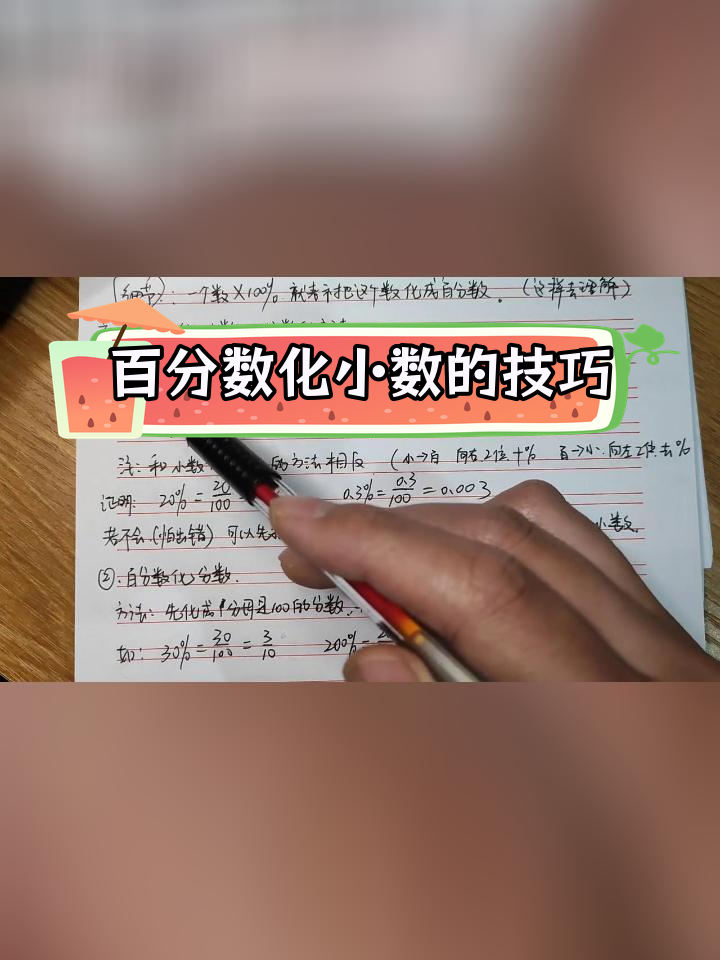 (细节):一个数×100%.就表示把这个数化成百分数。(这样去理解)
百分数化小数的技巧
注:和小数 的方法相反 (小→百 向右2位+% 百→小.向左2位去%
证明: 20%=20/100 0.3%=0.3/100=0.003
若不会(怕出错)可以先 小数.
②.百分数化分数.
方法:先化成 分母是100的分数.
如: 30%=30/100=3/10 200%=